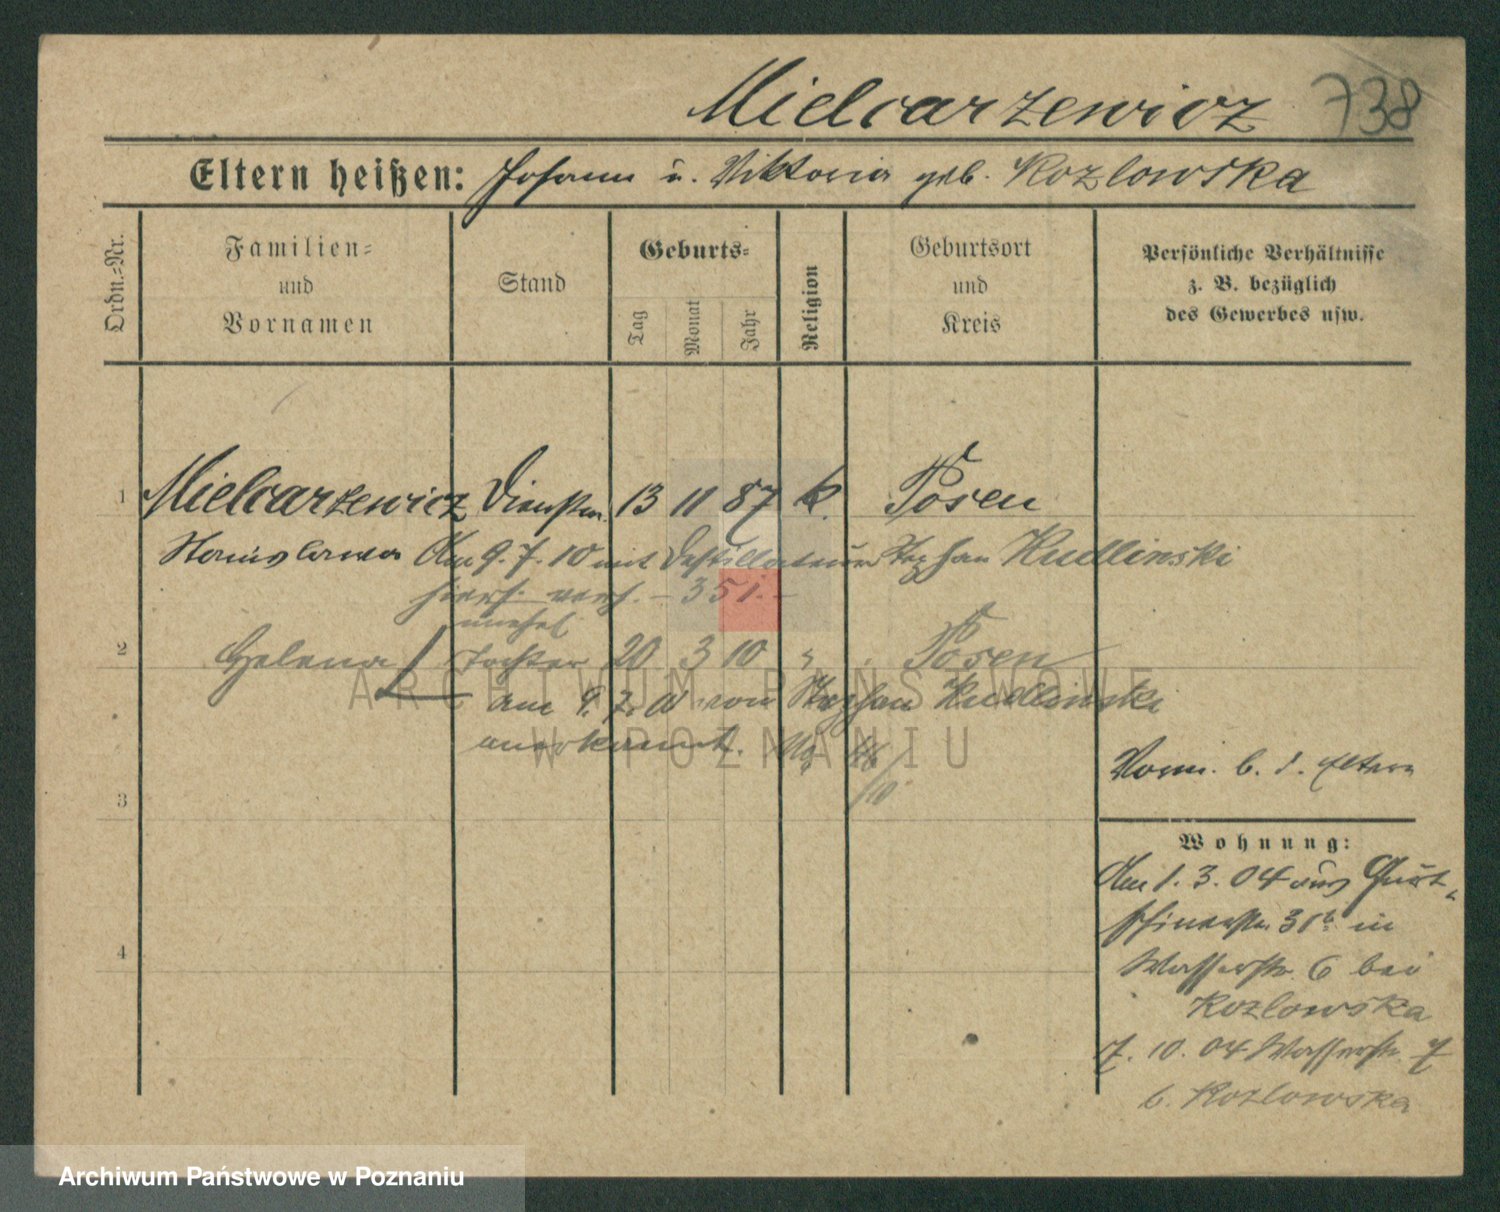 Mielcarzewicz 738
Eltern heißen: Johann u. Viktoria geb. Kozlowska
Ordn.=Nr.
Familien=
und
Vornamen
Stand
Geburts=
Tag
Monat
Jahr
Religion
Geburtsort
und
Kreis
Persönliche Verhältnisse
z. B. bezüglich
des Gewerbes usw.
1 Mielcarzewicz Dienstm. 13 11 87 k. Posen
Stanislawa Am 9. 7. 10 mit Destillateur Stephan Kudlinski
hiers. verh. - 351. -
unehel
2 Helena Tochter 20 3 10 " Posen
am 9. 7. 10 von Stephan Kudlinski
anerkannt.
Vorm. b. d. Eltern
3
Wohnung:
Am 1. 3. 04 aus Gurt-
schinerstr. 31b in
4
Wasserstr. 6 bei
Kozlowska
7. 10. 04 Wasserstr. 7
b. Kozlowska
ARCHIWUM PAŃSTWOWE
W POZNANIU
Archiwum Państwowe w Poznaniu